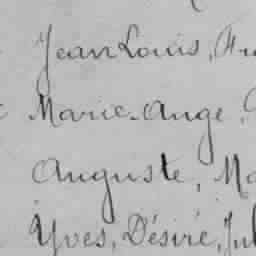 Jean Louis, Fra
Marie-Ange,
Auguste, Ma
Yves, Désiré, Jul